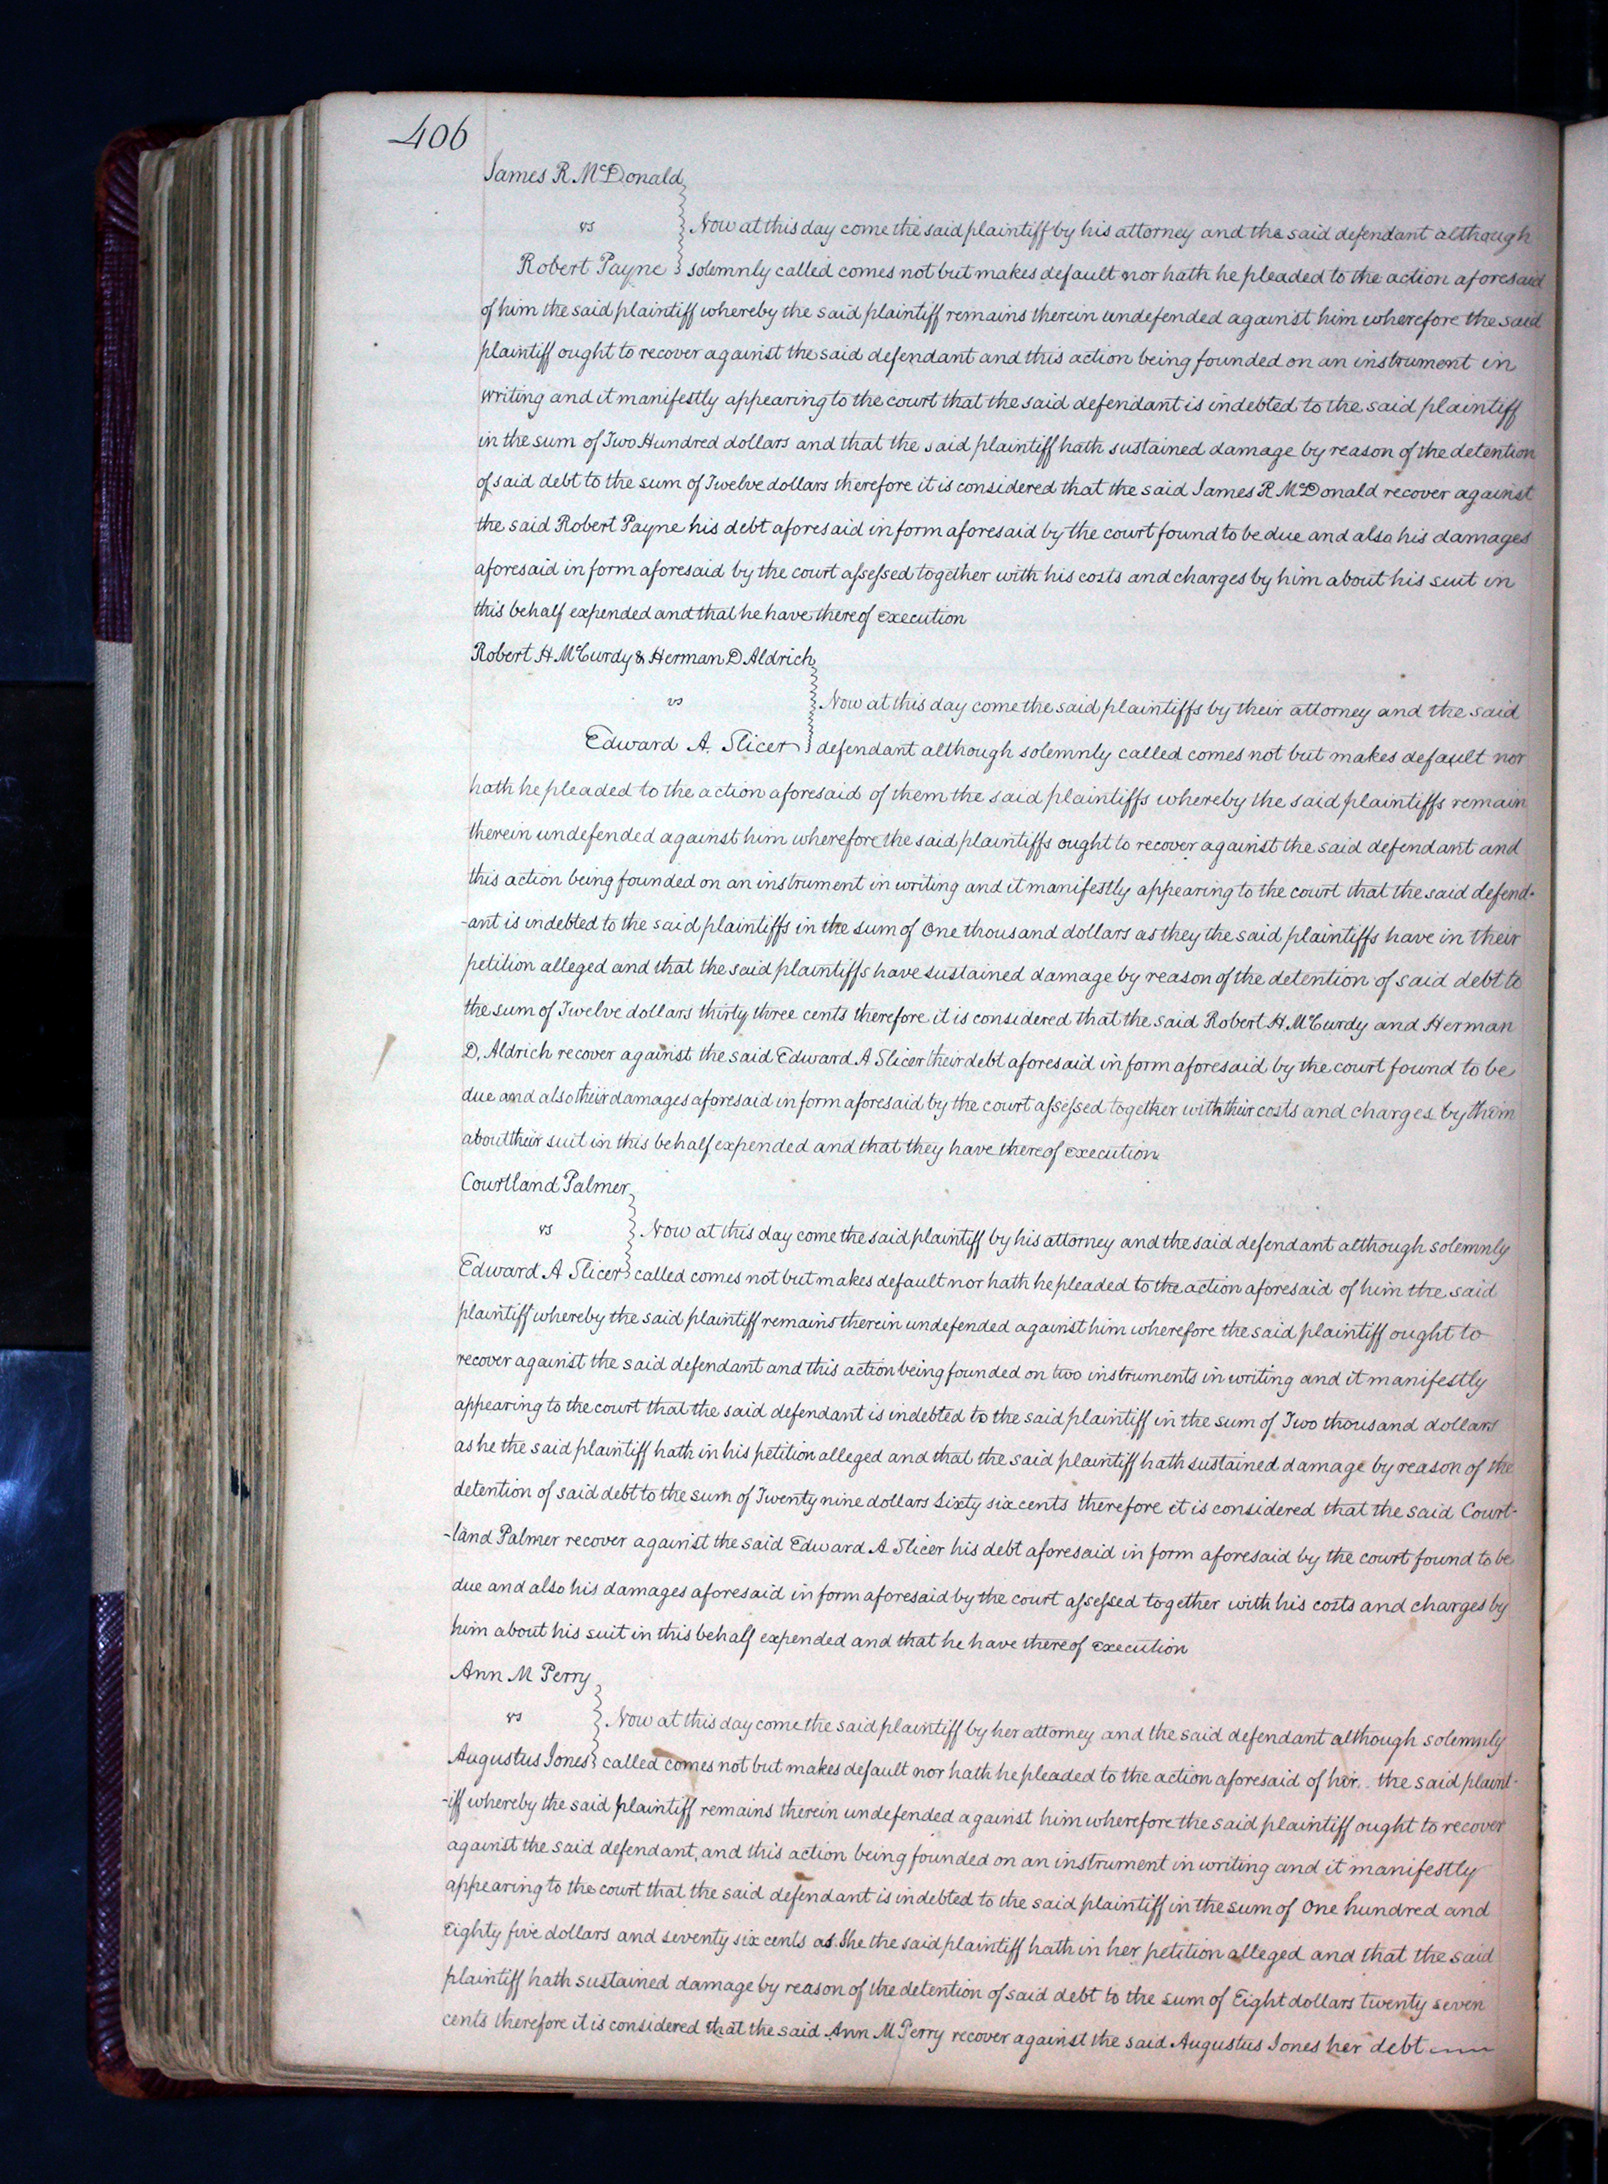 406
James R McDonald
vs
Now at this day come the said plaintiff by his attorney and the said defendant although
Robert Payne
solemnly called comes not but makes default nor hath he pleaded to the action aforesaid
of him the said plaintiff whereby the said plaintiff remains therein undefended against him wherefore the said
plaintiff ought to recover against the said defendant and this action being founded on an instrument in
writing and it manifestly appearing to the court that the said defendant is indebted to the said plaintiff
in the sum of Two Hundred dollars and that the said plaintiff hath sustained damage by reason of the detention
of said debt to the sum of Twelve dollars therefore it is considered that the said James R McDonald recover against
the said Robert Payne his debt aforesaid in form aforesaid by the court found to be due and also his damages
aforesaid in form aforesaid by the court assessed together with his costs and charges by him about his suit in
this behalf expended and that he have thereof execution
Robert H. McCurdy & Herman D Aldrich
vs
Now at this day come the said plaintiffs by their attorney and the said
Edward A. Slicer
defendant although solemnly called comes not but makes default nor
hath he pleaded to the action aforesaid of them the said plaintiffs whereby the said plaintiffs remain
therein undefended against him wherefore the said plaintiffs ought to recover against the said defendant and
this action being founded on an instrument in writing and it manifestly appearing to the court that the said defend-
-ant is indebted to the said plaintiffs in the sum of One thousand dollars as they the said plaintiffs have in their
petition alleged and that the said plaintiffs have sustained damage by reason of the detention of said debt to
the sum of Twelve dollars thirty three cents therefore it is considered that the said Robert H. McCurdy and Herman
D. Aldrich recover against the said Edward A Slicer their debt aforesaid in form aforesaid by the court found to be
due and also their damages aforesaid in form aforesaid by the court assessed together with their costs and charges by them
about their suit in this behalf expended and that they have thereof execution
Courtland Palmer
vs
Now at this day come the said plaintiff by his attorney and the said defendant although solemnly
Edward A Slicer
called comes not but makes default nor hath he pleaded to the action aforesaid of him the said
plaintiff whereby the said plaintiff remains therein undefended against him wherefore the said plaintiff ought to
recover against the said defendant and this action being founded on two instruments in writing and it manifestly
appearing to the court that the said defendant is indebted to the said plaintiff in the sum of Two thousand dollars
as he the said plaintiff hath in his petition alleged and that the said plaintiff hath sustained damage by reason of the
detention of said debt to the sum of Twenty nine dollars Sixty six cents therefore it is considered that the said Court-
-land Palmer recover against the said Edward A Slicer his debt aforesaid in form aforesaid by the court found to be
due and also his damages aforesaid in form aforesaid by the court assessed together with his costs and charges by
him about his suit in this behalf expended and that he have thereof execution
Ann M Perry
vs
Now at this day come the said plaintiff by her attorney and the said defendant although solemnly
Augustus Jones
called comes not but makes default nor hath he pleaded to the action aforesaid of her the said plaint-
-iff whereby the said plaintiff remains therein undefended against him wherefore the said plaintiff ought to recover
against the said defendant, and this action being founded on an instrument in writing and it manifestly
appearing to the court that the said defendant is indebted to the said plaintiff in the sum of One hundred and
Eighty five dollars and seventy six cents as she the said plaintiff hath in her petition alleged and that the said
plaintiff hath sustained damage by reason of the detention of said debt to the sum of Eight dollars twenty seven
cents therefore it is considered that the said Ann M Perry recover against the said Augustus Jones her debt